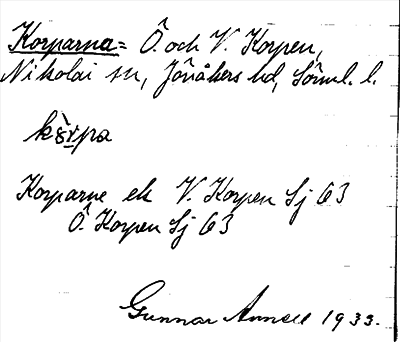 Korparna = Ö. och V. Korpen,
Nikolai sn, Jönåkers hd, Söml. l.
kɔ̀rpa
Korparne ek V. Korpen Sj 63
Ö. Korpen Sj 63
Gunnar Annell 1933.